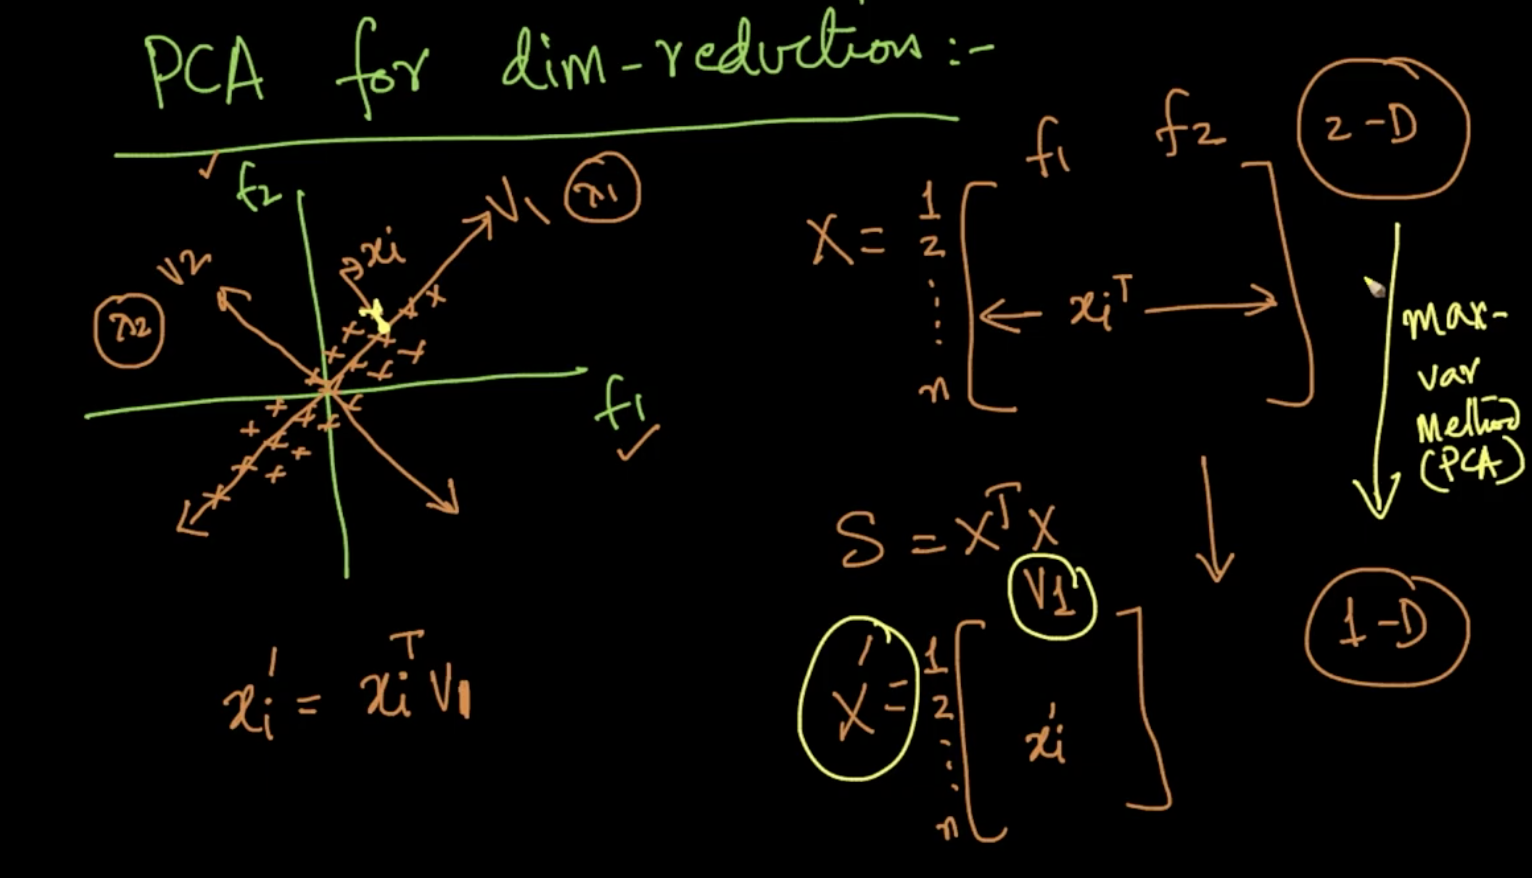 PCA for dim-reduction:-
f2
V1
λ1
xi
V2
λ2
f1
xi' = xiᵀ V1
f1 f2
2-D
X =
1
2
⋮
n
xiᵀ
max-
var
Method
(PCA)
S = XᵀX
V1
X' =
1
2
⋮
n
xi'
1-D